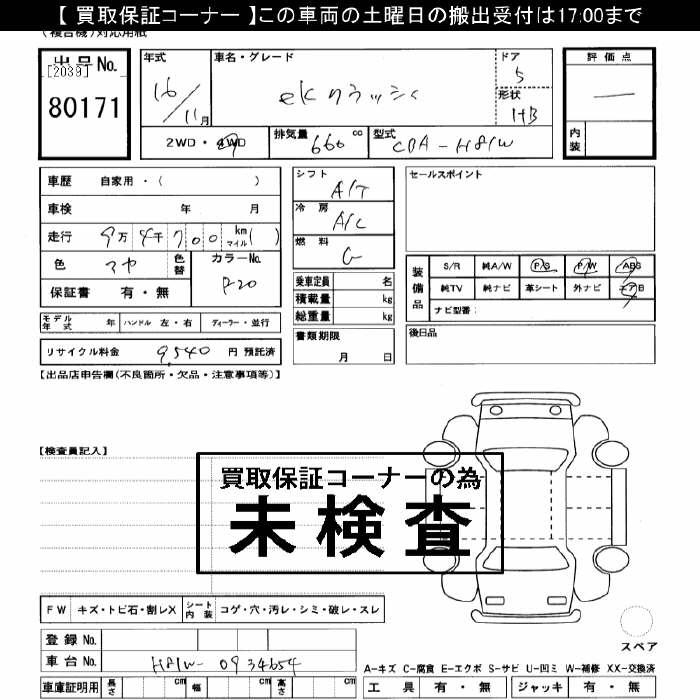 【 買取保証コーナー 】この車両の土曜日の搬出受付は17:00まで
(複合機)対応用紙
出品No.
[2039]
80171
年式
16/11月
車名・グレード
ekクラッシィ
ドア
5
形状
HB
評価点
—
内装
2WD・4WD
排気量 660 cc
型式 CBA-H81W
車歴 自家用・( )
車検 年 月
走行 9万 4千 700 km マイル( )
色 マヤ 色替
カラーNo. P20
保証書 有・無
シフト A/T
冷房 A/C
燃料 G
乗車定員 名
積載量 kg
総重量 kg
セールスポイント
装備品
S/R 純A/W P/S P/W ABS
純TV 純ナビ 革シート 外ナビ エアB
ナビ型番:
モデル年式 年 ハンドル 左・右 ディーラー・並行
書類期限
月 日
後日品
リサイクル料金 9,540 円 預託済
【出品店申告欄(不良箇所・欠品・注意事項等)】
【検査員記入】
買取保証コーナーの為
未検査
FW キズ・トビ石・割レX シート内装 コゲ・穴・汚レ・シミ・破レ・スレ
登録No.
車台No. H81W-0934654
スペア
車庫証明用 長さ cm 幅 cm 高さ cm
A-キズ C-腐食 E-エクボ S-サビ U-凹ミ W-補修 XX-交換済
工具 有・無 ジャッキ 有・無